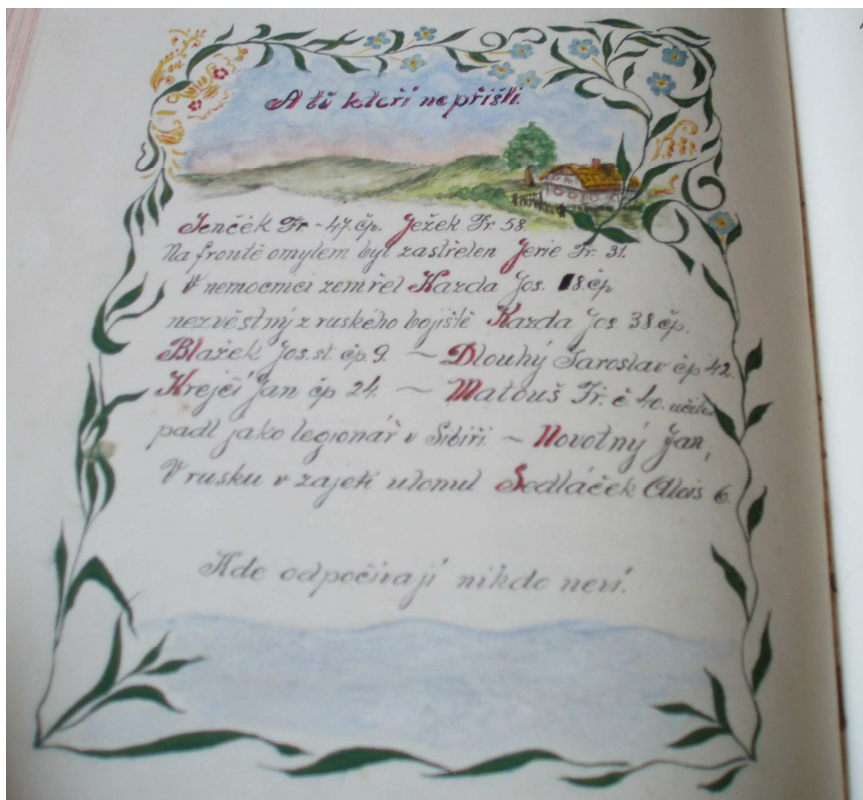 A tů kteří nepřišli.
Jenčék Fr - 47. čp. Ježek Fr 58.
Na frontě omylem byl zastřelen Jerie Fr. 31.
V nemocnici zemřel Kazda Jos. 8. čp
nezvěstný z ruského bojiště Kazda Jos. 38. čp.
Blažek Jos. st. čp 9. ~ Dlouhý Jaroslav čp 42.
Krejčí Jan čp 24. ~ Matouš Fr. č 40. učitel
padl jako legionář v Sibiři ~ Novotný Jan,
V rusku v zajetí utonul Sedláček Alois 6.
Kde odpočívají nikdo neví.